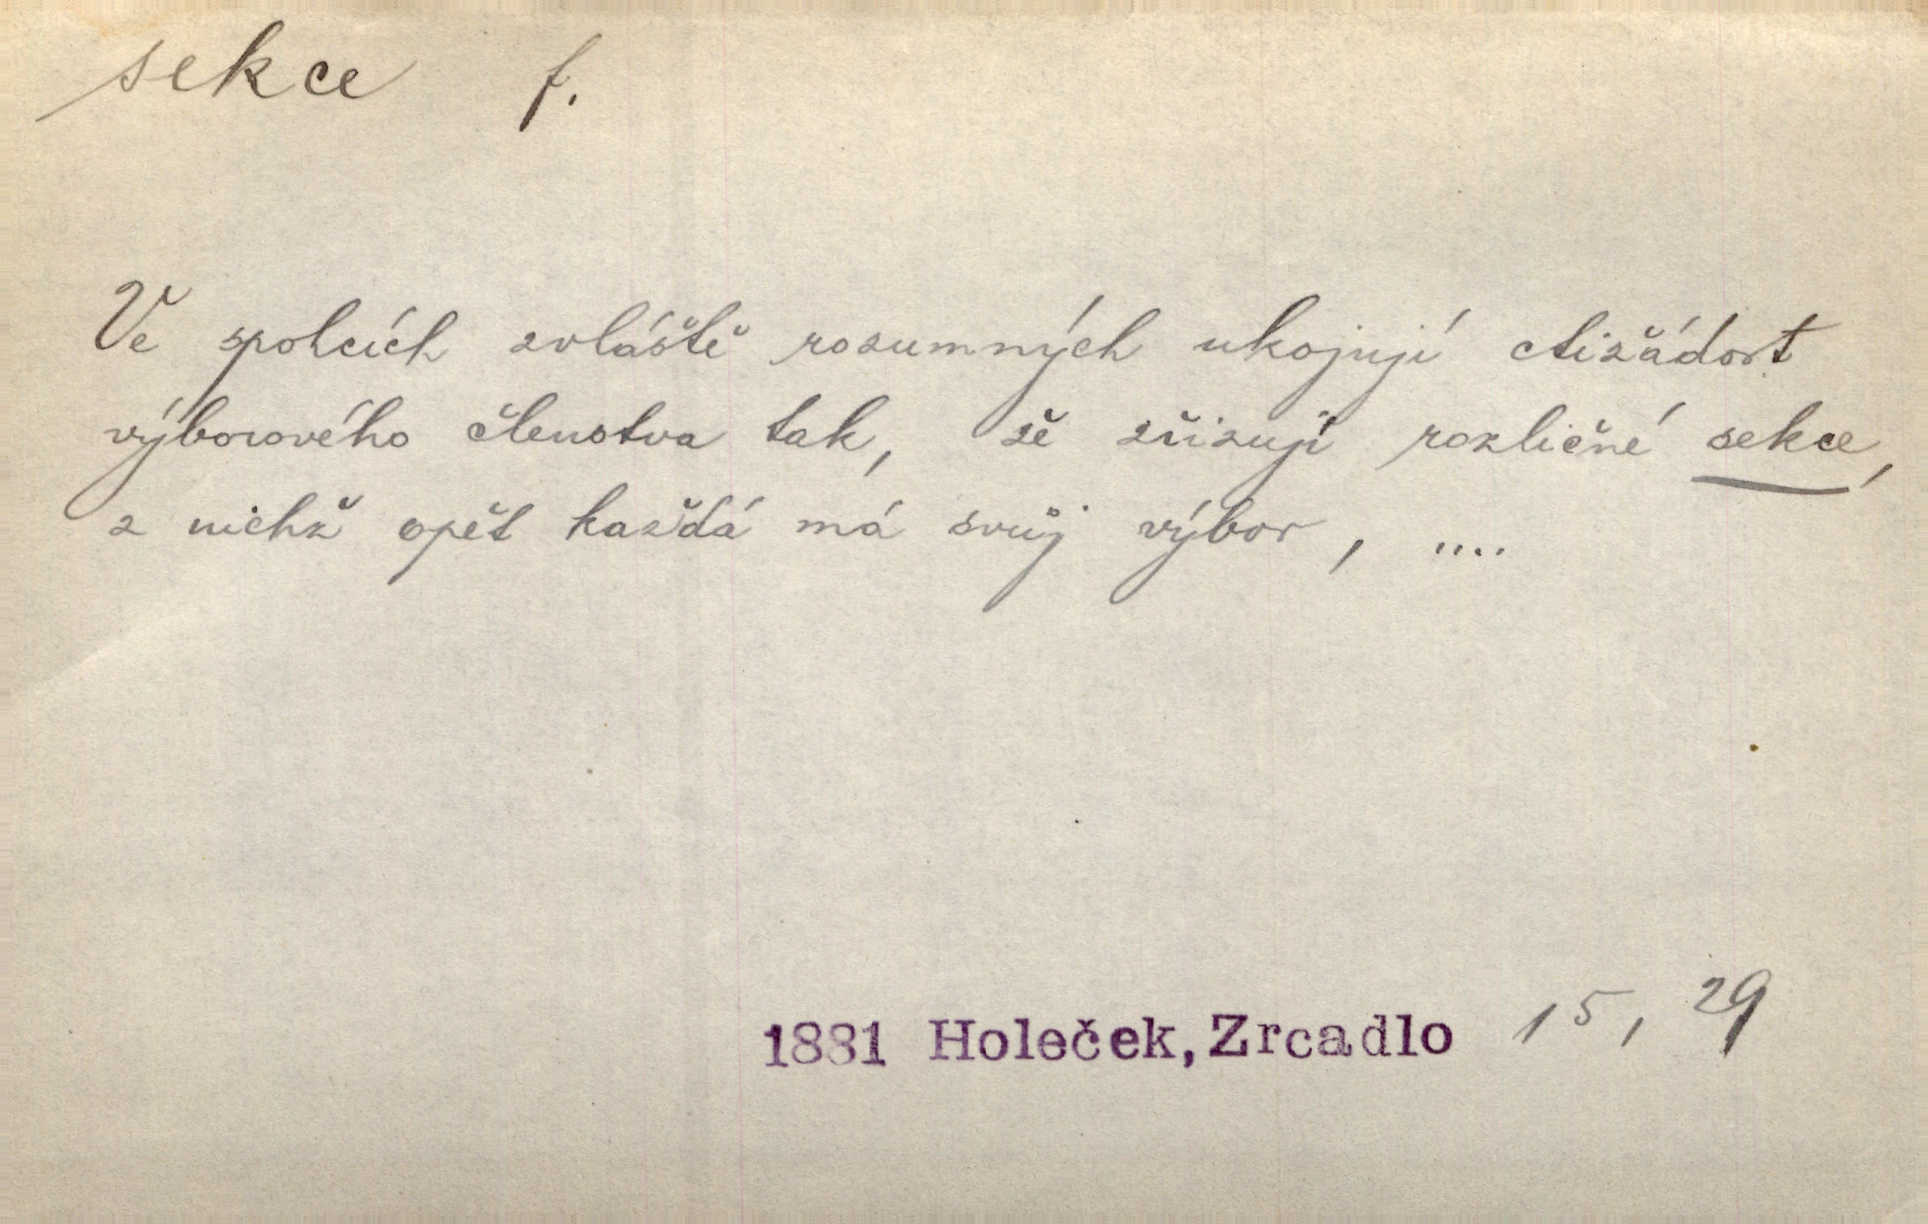 sekce f.
Ve spolcích zvláště rozumných ukojují ctižádost
výborového členstva tak, že zřizují rozličné sekce,
z nichž opět každá má svůj výbor, ....
1881 Holeček, Zrcadlo 15, 29